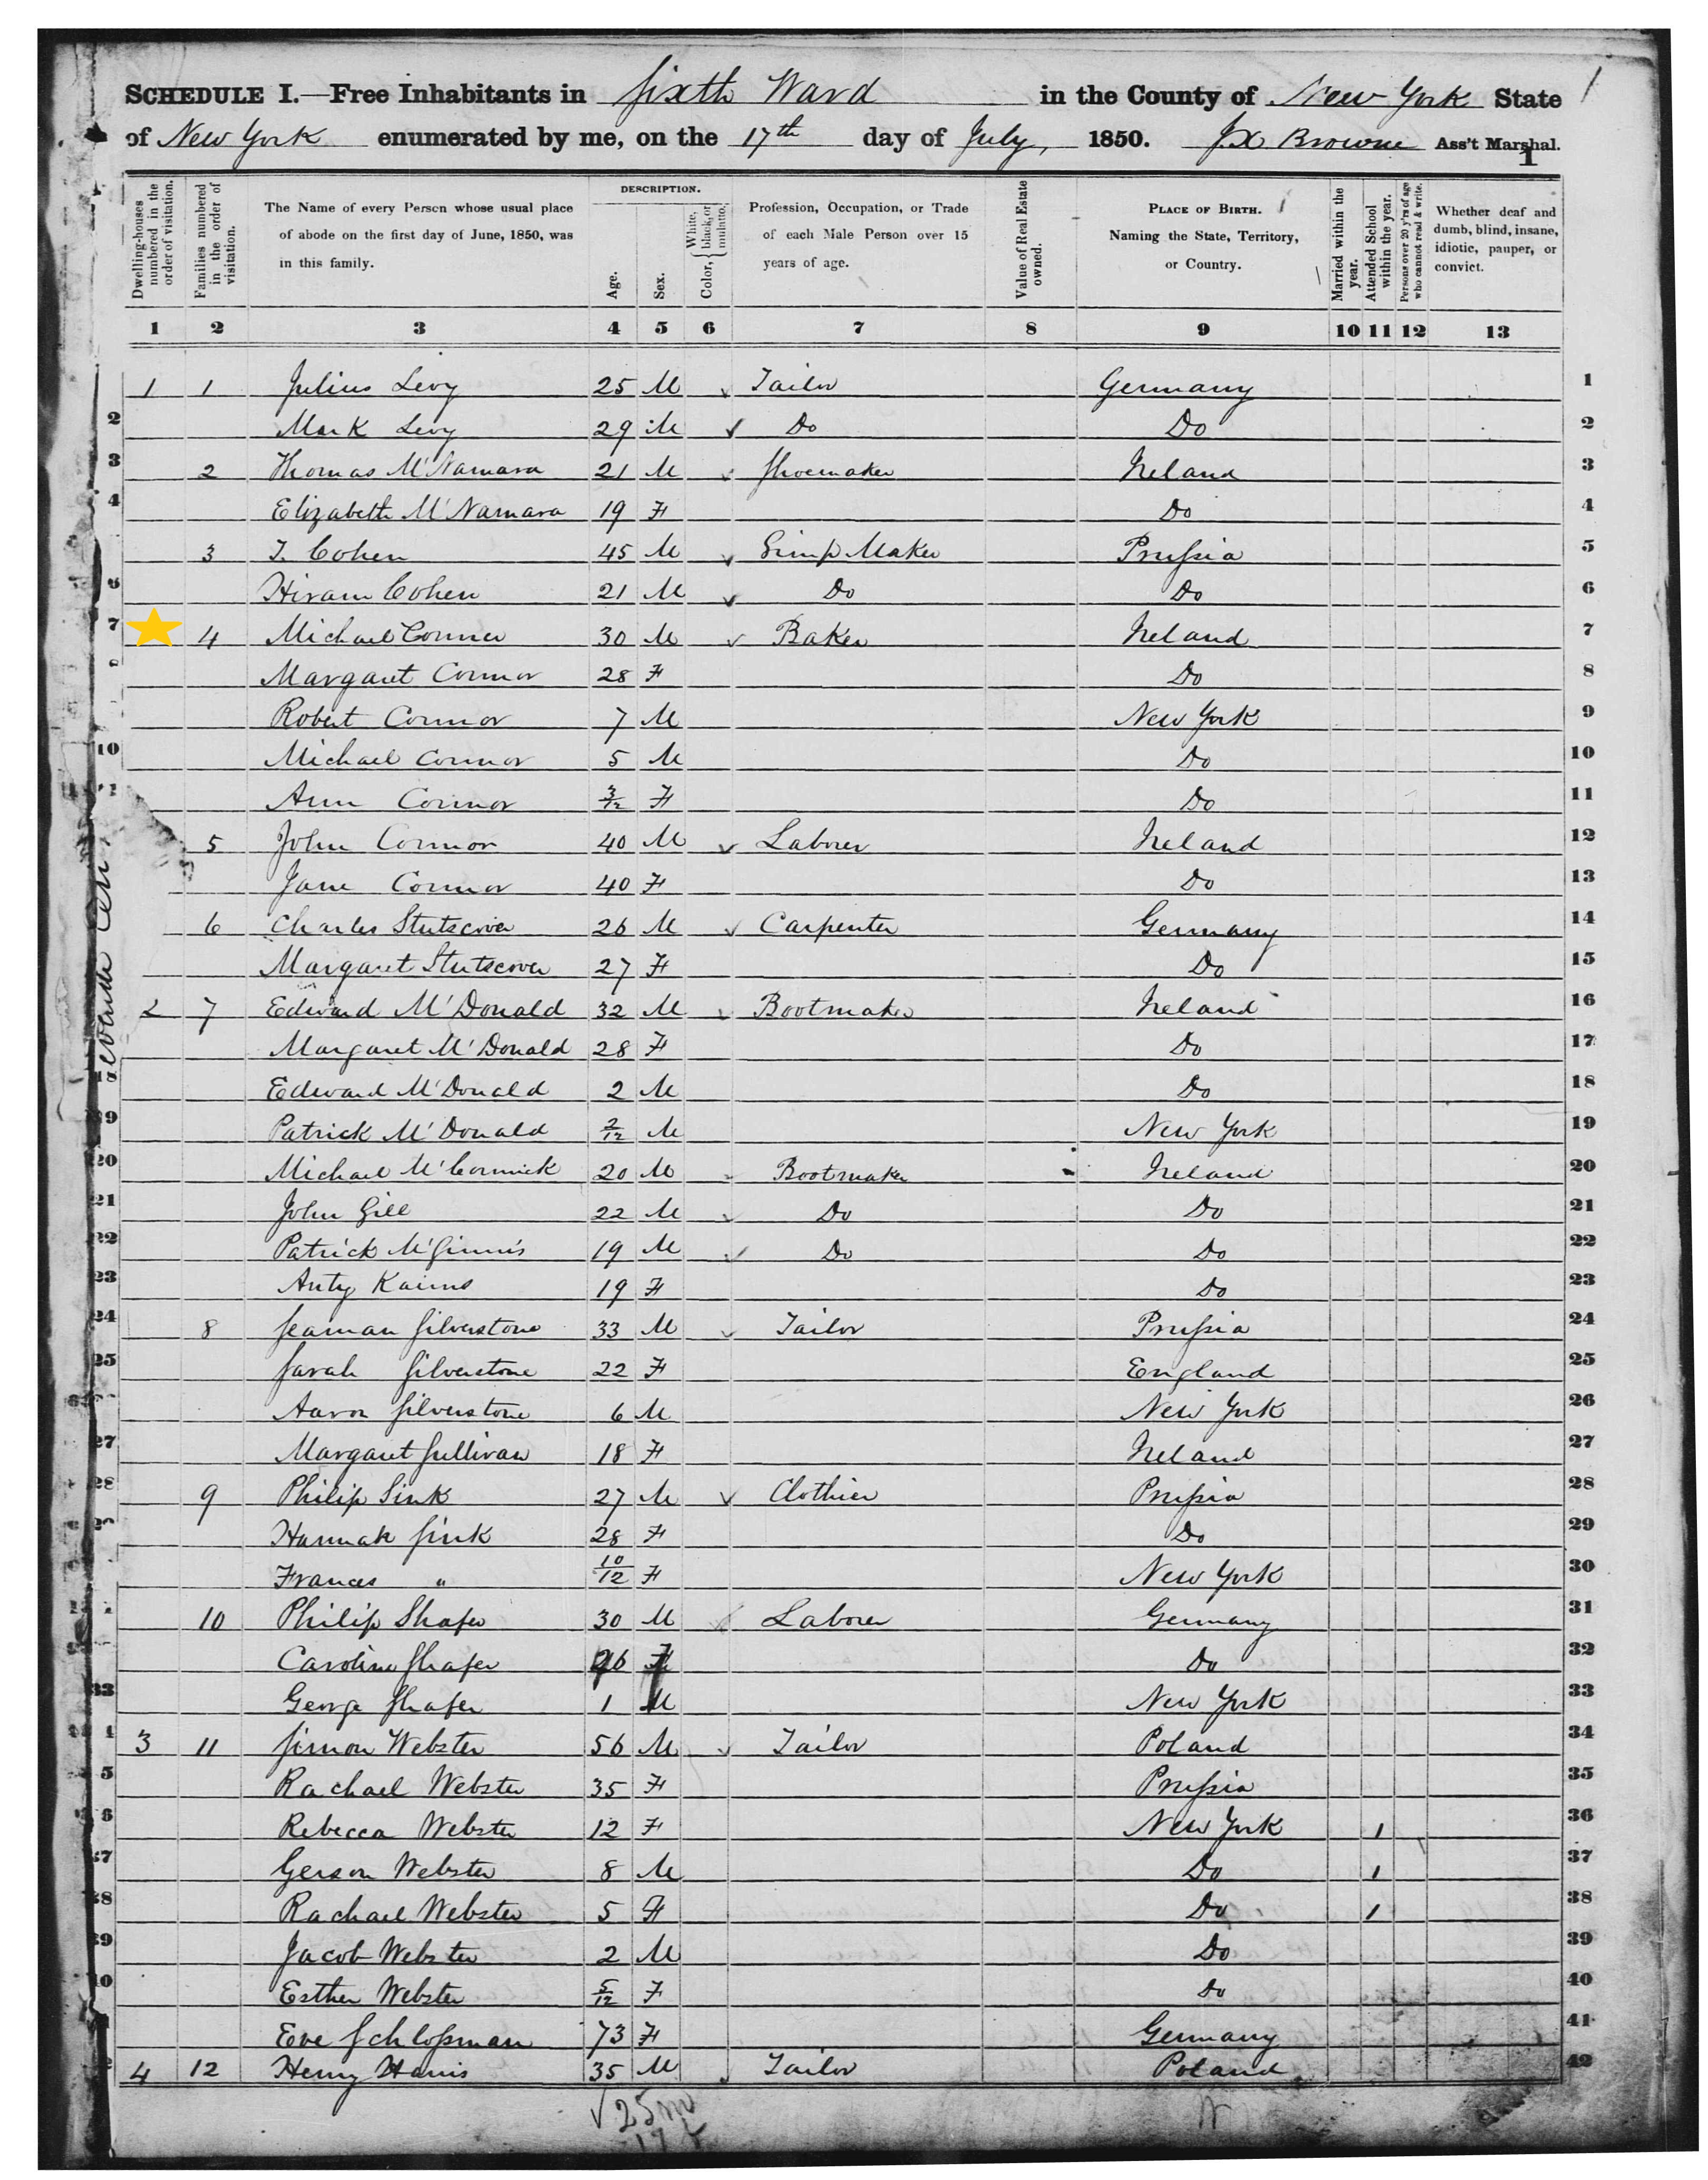 SCHEDULE I.—Free Inhabitants in Sixth Ward in the County of New York State 1
of New York enumerated by me, on the 17th day of July, 1850. J. Browne Ass't Marshal.
1
Dwelling-houses numbered in the order of visitation.
Families numbered in the order of visitation.
The Name of every Person whose usual place of abode on the first day of June, 1850, was in this family.
DESCRIPTION.
Age.
Sex.
Color, { White, black, or mulatto.
Profession, Occupation, or Trade of each Male Person over 15 years of age.
Value of Real Estate owned.
PLACE OF BIRTH. Naming the State, Territory, or Country.
Married within the year.
Attended School within the year.
Persons over 20 y'rs of age who cannot read & write.
Whether deaf and dumb, blind, insane, idiotic, pauper, or convict.
1 2 3 4 5 6 7 8 9 10 11 12 13
1 1 Julius Levy 25 M Tailor Germany 1
2 Mark Levy 29 M Do Do 2
3 2 Thomas M'Namara 21 M Shoemaker Ireland 3
4 Elizabeth M'Namara 19 F Do 4
3 I. Cohen 45 M Gimp Maker Prussia 5
6 Hiram Cohen 21 M Do Do 6
7 4 Michael Conner 30 M Baker Ireland 7
Margaret Connor 28 F Do 8
Robert Connor 7 M New York 9
10 Michael Connor 5 M Do 10
Ann Connor 3/12 F Do 11
5 John Connor 40 M Laborer Ireland 12
Jane Connor 40 F Do 13
6 Charles Stutscover 26 M Carpenter Germany 14
Margaret Stutscover 27 F Do 15
2 7 Edward M'Donald 32 M Bootmaker Ireland 16
Margaret M'Donald 28 F Do 17
Edward M'Donald 2 M Do 18
19 Patrick M'Donald 2/12 M New York 19
20 Michael M'Cormick 20 M Bootmaker Ireland 20
21 John Gill 22 M Do Do 21
22 Patrick M'Ginnis 19 M Do Do 22
23 Anty Kairns 19 F Do 23
24 8 Seaman Silverstone 33 M Tailor Prussia 24
25 Sarah Silverstone 22 F England 25
Aaron Silverstone 6 M New York 26
27 Margaret Sullivan 18 F Ireland 27
28 9 Philip Sink 27 M Clothier Prussia 28
Hannah Sink 28 F Do 29
Frances " 10/12 F New York 30
10 Philip Shafer 30 M Laborer Germany 31
Caroline Shafer 26 F Do 32
33 George Shafer 1 M New York 33
3 11 Simon Webster 56 M Tailor Poland 34
5 Rachael Webster 35 F Prussia 35
6 Rebecca Webster 12 F New York 1 36
37 Gerson Webster 8 M Do 1 37
38 Rachael Webster 5 F Do 1 38
39 Jacob Webster 2 M Do 39
10 Esther Webster 5/12 F Do 40
Eve Schlossman 73 F Germany 41
4 12 Henry Harris 35 M Tailor Poland 42
25 m
17 f